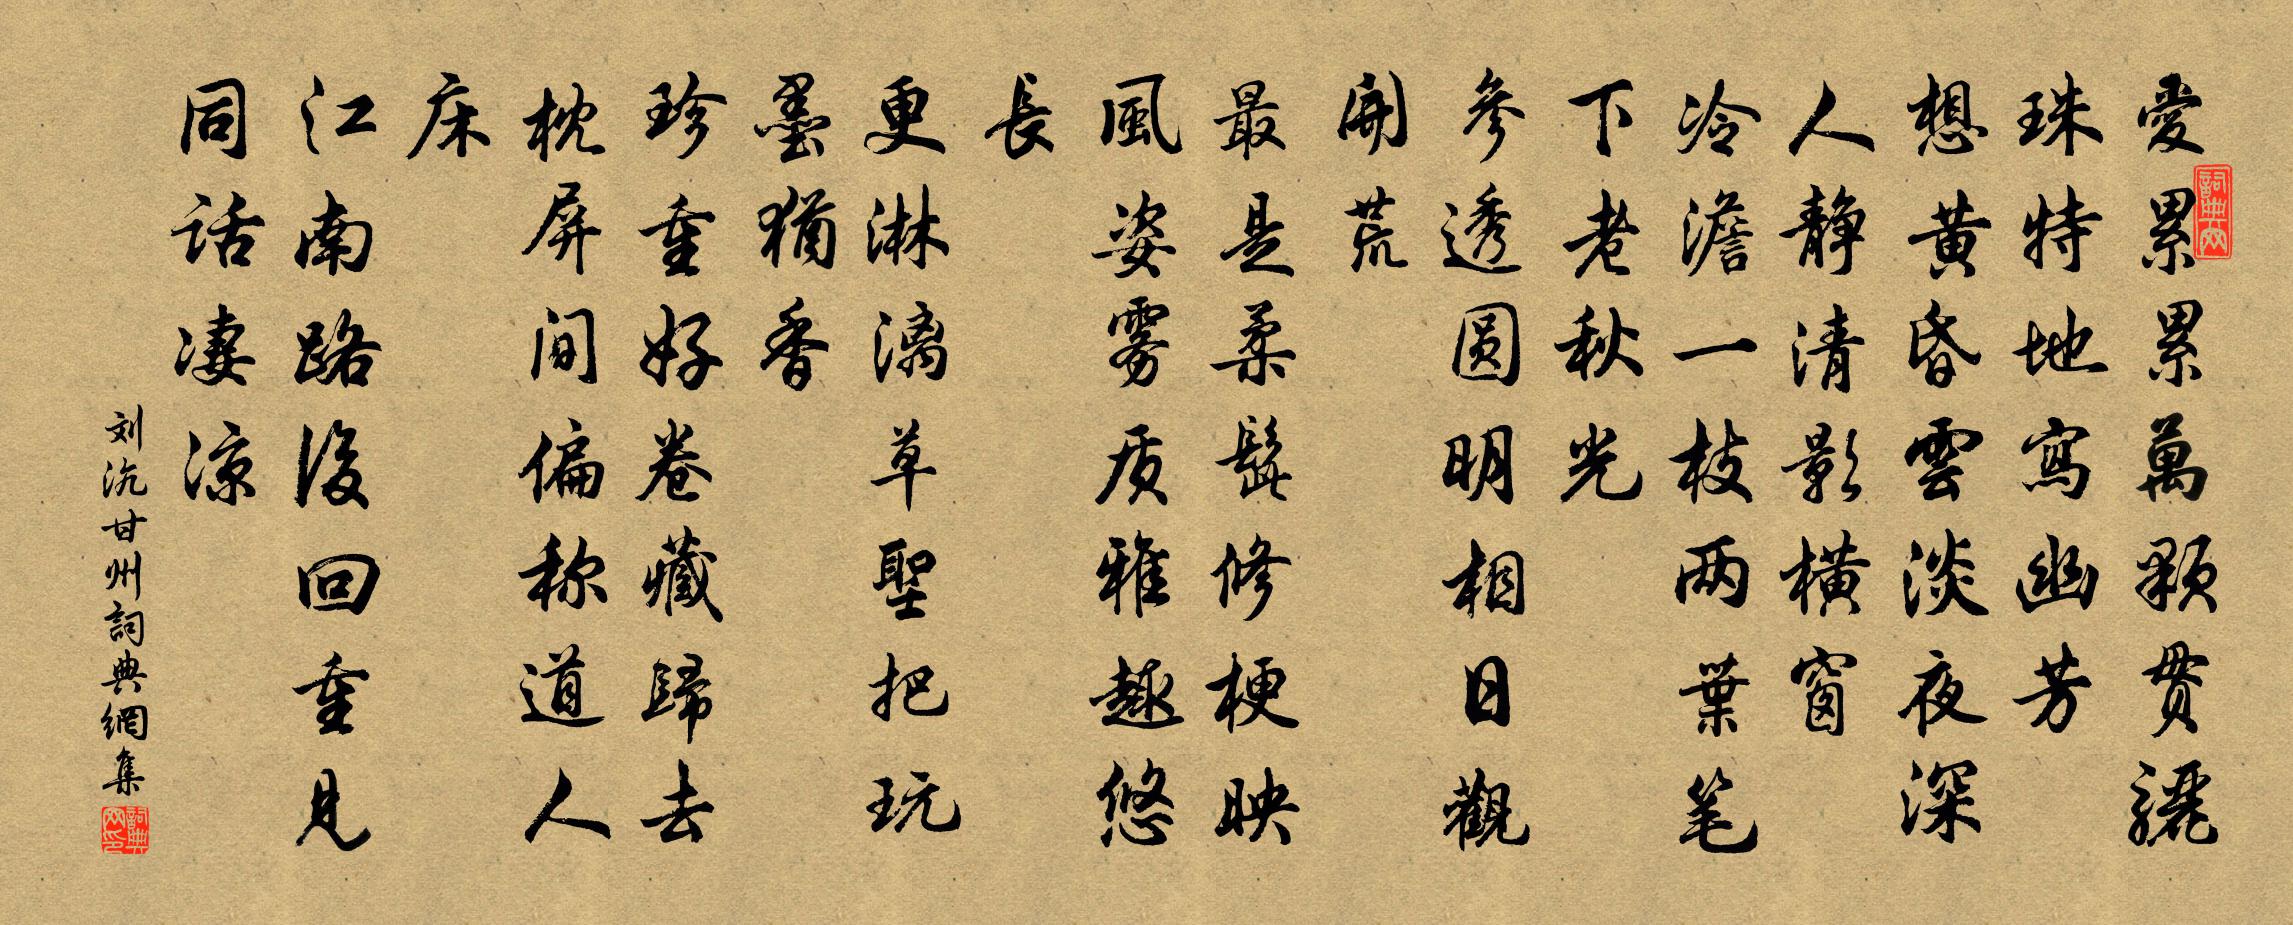 愛累累萬顆貫驪
珠特地寫幽芳
想黄昏雲淡夜深
人静清影横窗
冷澹一枝两葉笔
下老秋光
參透圆明相日觀
開荒
最是柔髭修梗映
風姿雾质雅趣悠
長
更淋漓草聖把玩
墨猶香
珍重好卷藏歸去
枕屏间偏称道人
床
江南路後回重見
同话凄涼
刘沆甘州詞典網集
詞典网
詞典网印